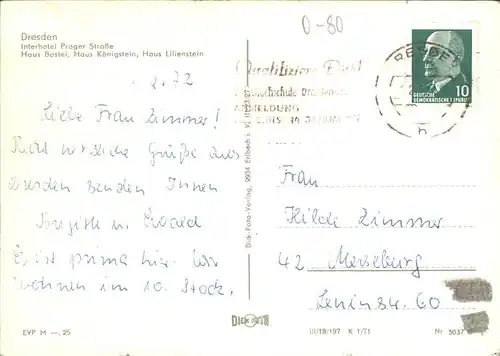 Dresden
Interhotel Prager Straße
Haus Bastei, Haus Königstein, Haus Lilienstein
0-80
2.72
Liebe Frau Zimmer!
Recht herzliche Grüße aus
Dresden senden Ihnen
Brigitte u. Ewald
Es ist prima hier. Wir
wohnen im 10. Stock.
EVP M —,25
Dick-Foto-Verlag, 9934 Erlbach i. V.
DICK FOTO
Qualifiziere Dich!
ANMELDUNG
BIS JANUAR
DRESDEN
h
DEUTSCHE
DEMOKRATISCHE REPUBLIK
10
Frau
Hilde Zimmer
42 Merseburg
Leninstr. 60
III/18/197 K 1/71
Nr 5037